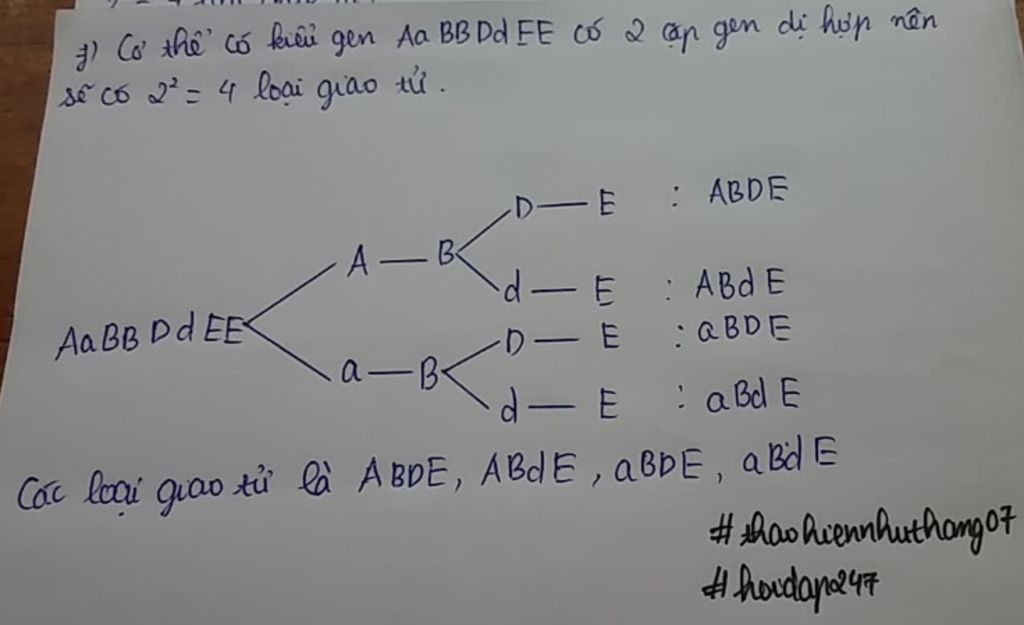 g) Cơ thể có kiểu gen AaBBDdEE có 2 cặp gen dị hợp nên
sẽ có 2² = 4 loại giao tử.
D — E : ABDE
A — B
d — E : ABdE
AaBBDdEE
D — E : aBDE
a — B
d — E : aBdE
Các loại giao tử là ABDE, ABdE, aBDE, aBdE
#thaohiennhuthang07
#hoidap247